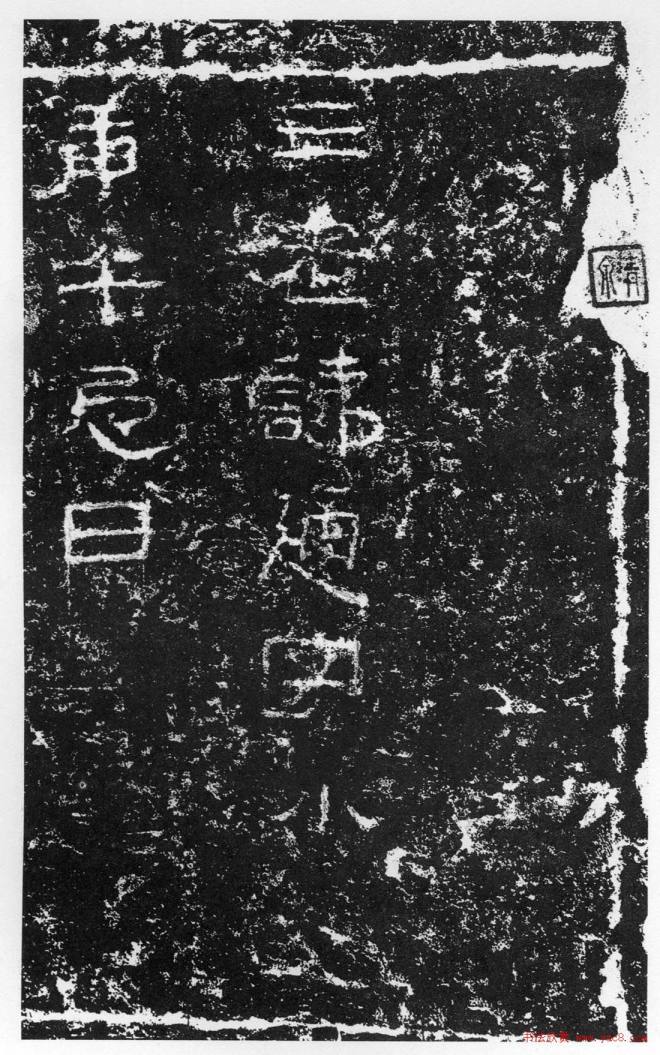 三老諱通字小父
庚午忌日
书法欣赏 www.yac8.com